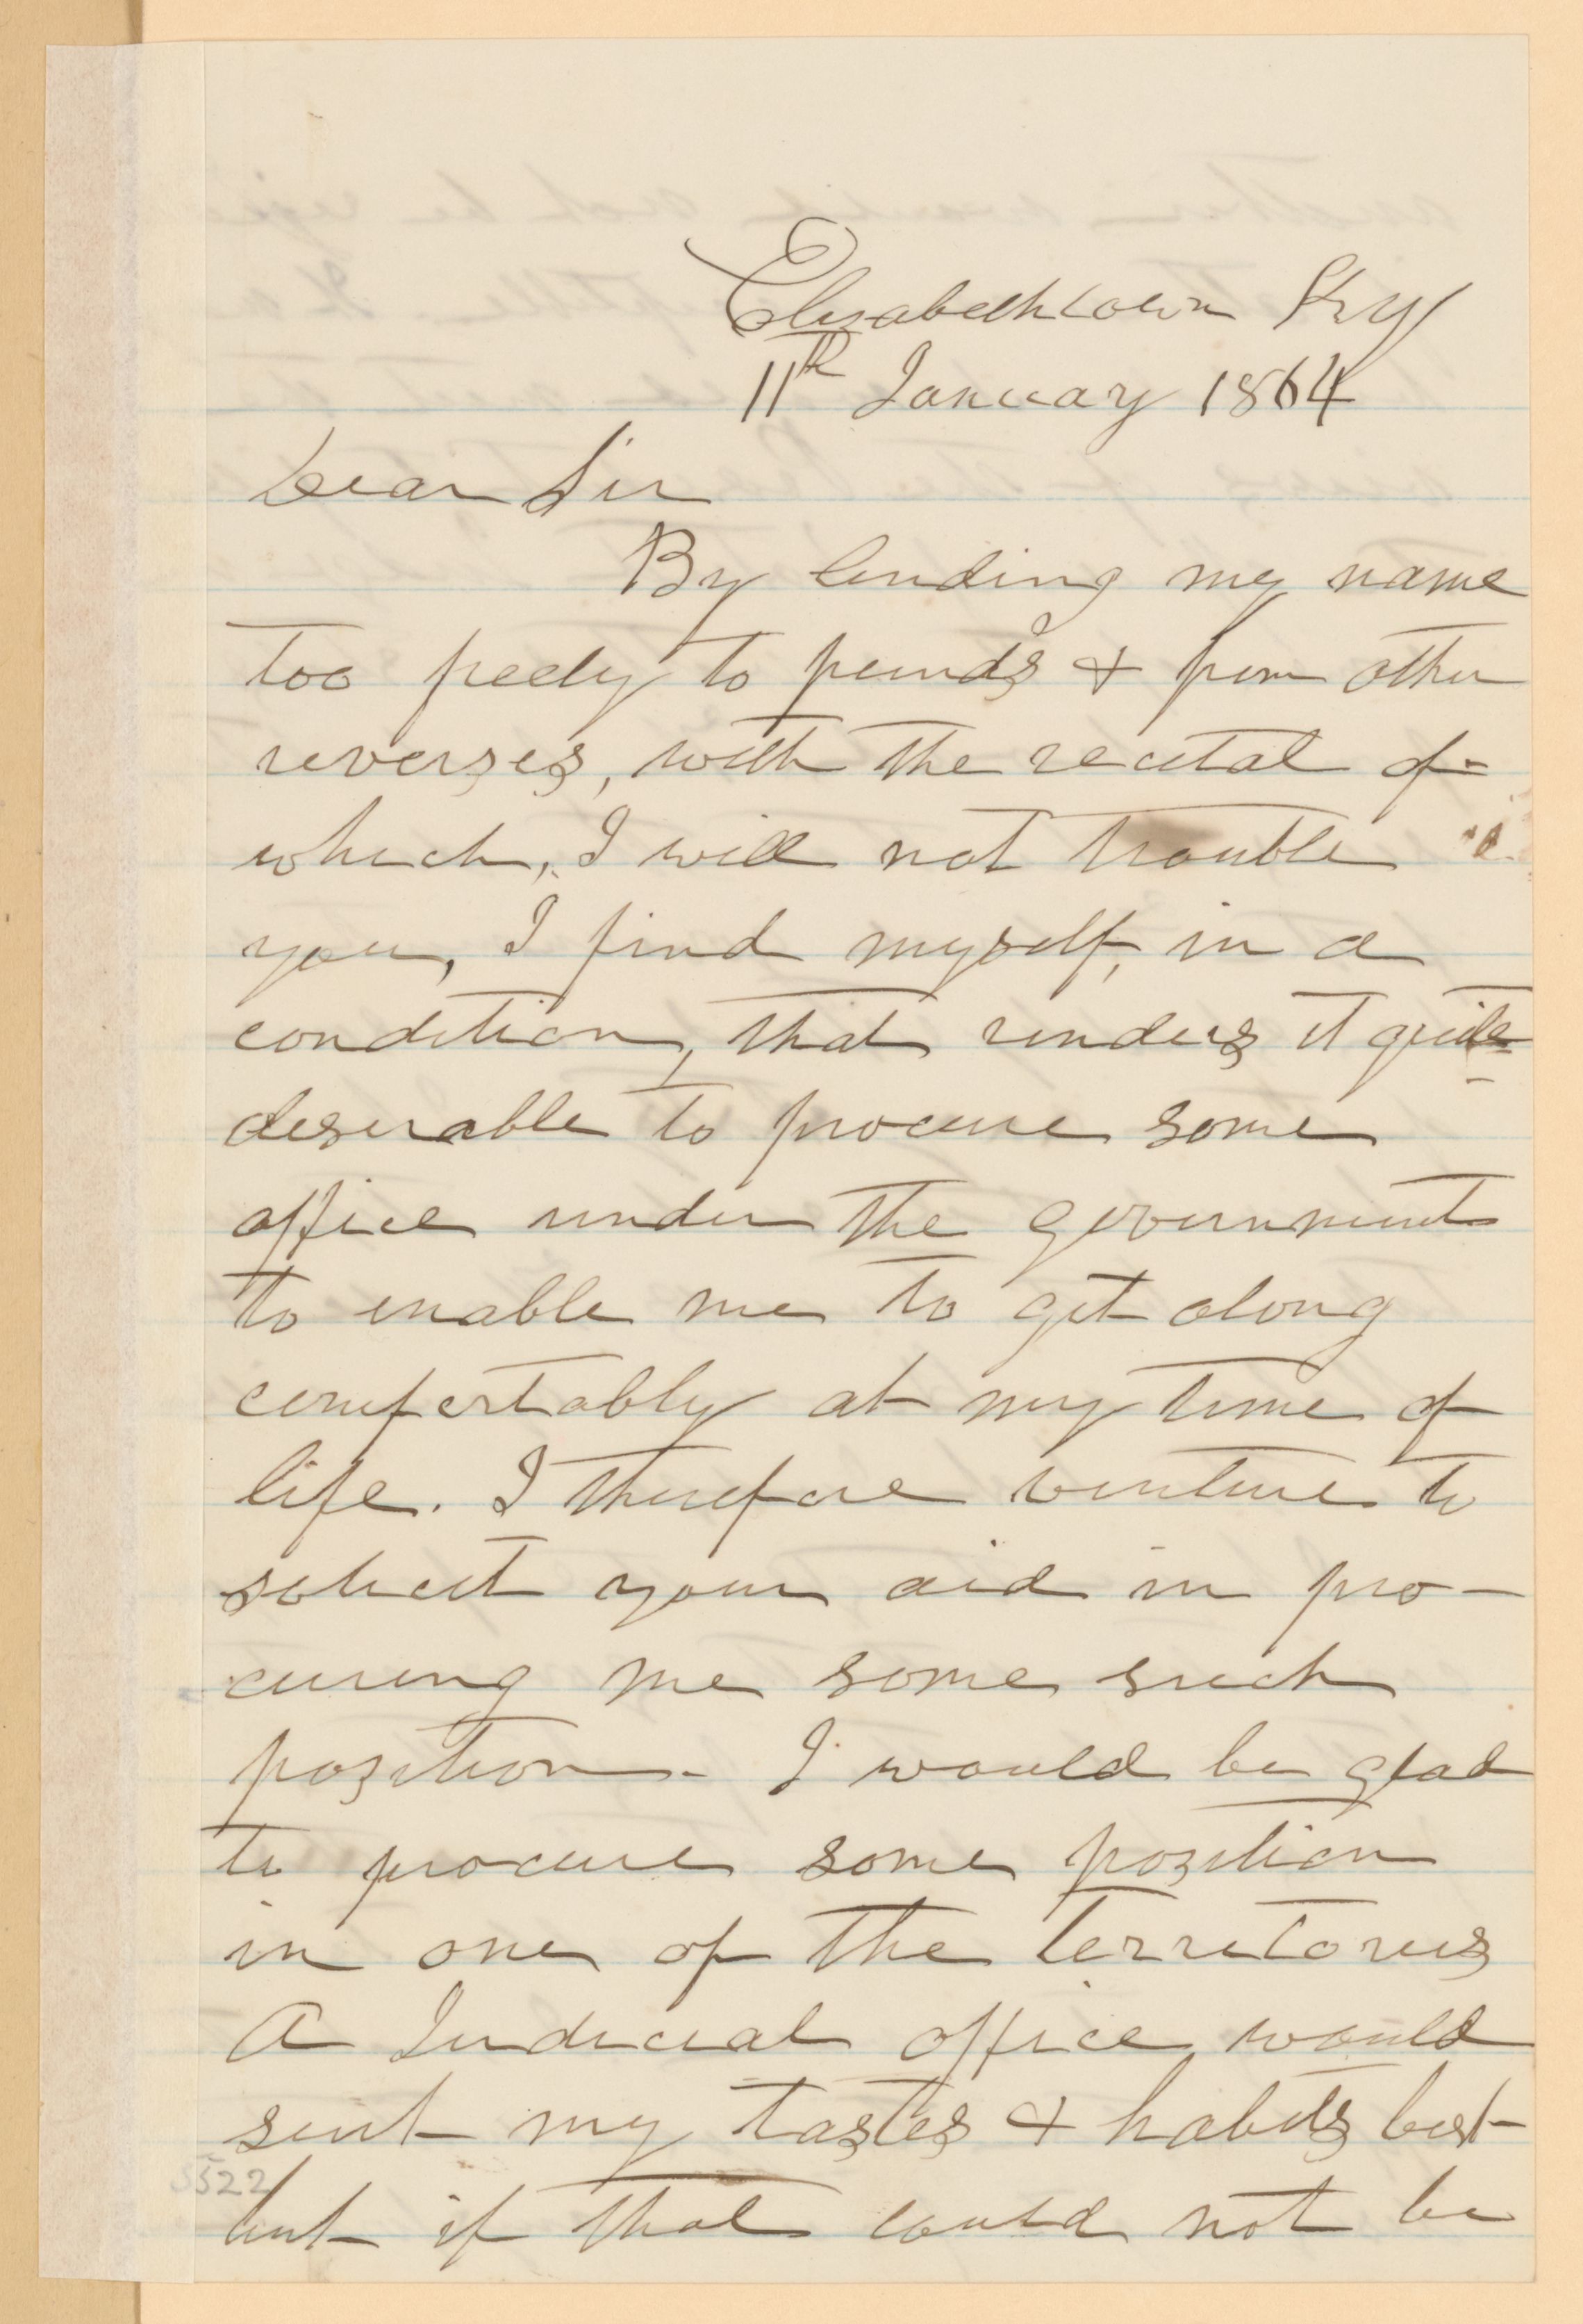 Elizabethtown Ky
11th January 1864
Dear Sir
By lending my name
too freely to friends & from other
reverses, with the recital of
which, I will not trouble
you, I find myself, in a
condition, that renders it quite
desirable to procure some
office under the government
to enable me to get along
comfortably at my time of
life. I therefore venture to
solicit your aid in pro-
curing me some such
position. I would be glad
to procure some position
in one of the territories
A Judicial office would
suit my tastes & habits best
but if that could not be
5522